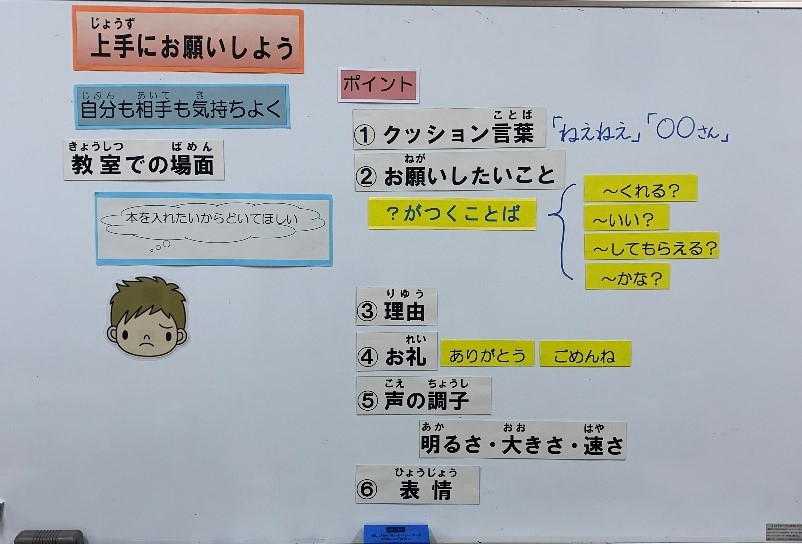 上手にお願いしよう
じょうず
自分も相手も気持ちよく
じぶん あいて き
教室での場面
きょうしつ ばめん
本を入れたいからどいてほしい
ポイント
① クッション言葉 「ねえねえ」「〇〇さん」
ことば
② お願いしたいこと
ねが
？がつくことば
～くれる？
～いい？
～してもらえる？
～かな？
③ 理由
りゆう
④ お礼 ありがとう ごめんね
れい
⑤ 声の調子
こえ ちょうし
明るさ・大きさ・速さ
あか おお はや
⑥ 表情
ひょうじょう